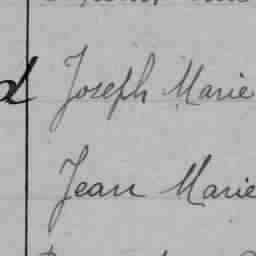 d Joseph Marie
Jean Marie